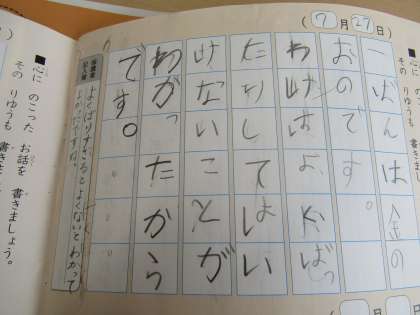 ■心に
その り
(7月27日)
一ばんは金の
おのです。
わけはよくばっ
たりしてはい
けないことが
わかったから
です。
よくばりすぎるとよくないとわかって
よかったですね。
■心に のこった お話を 書きましょう。
その りゆうも 書きましょう。